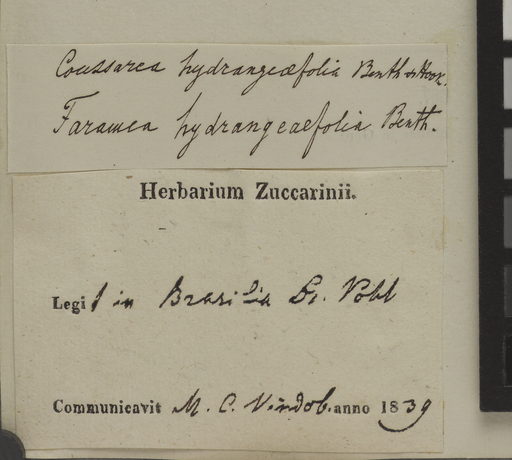 Coussarea hydrangeæfolia Benth & Hook.
Faramea hydrangeaefolia Benth.
Herbarium Zuccarinii.
Legit in Brasilia Dr. Pohl
Communicavit M. C. Vindob. anno 1839